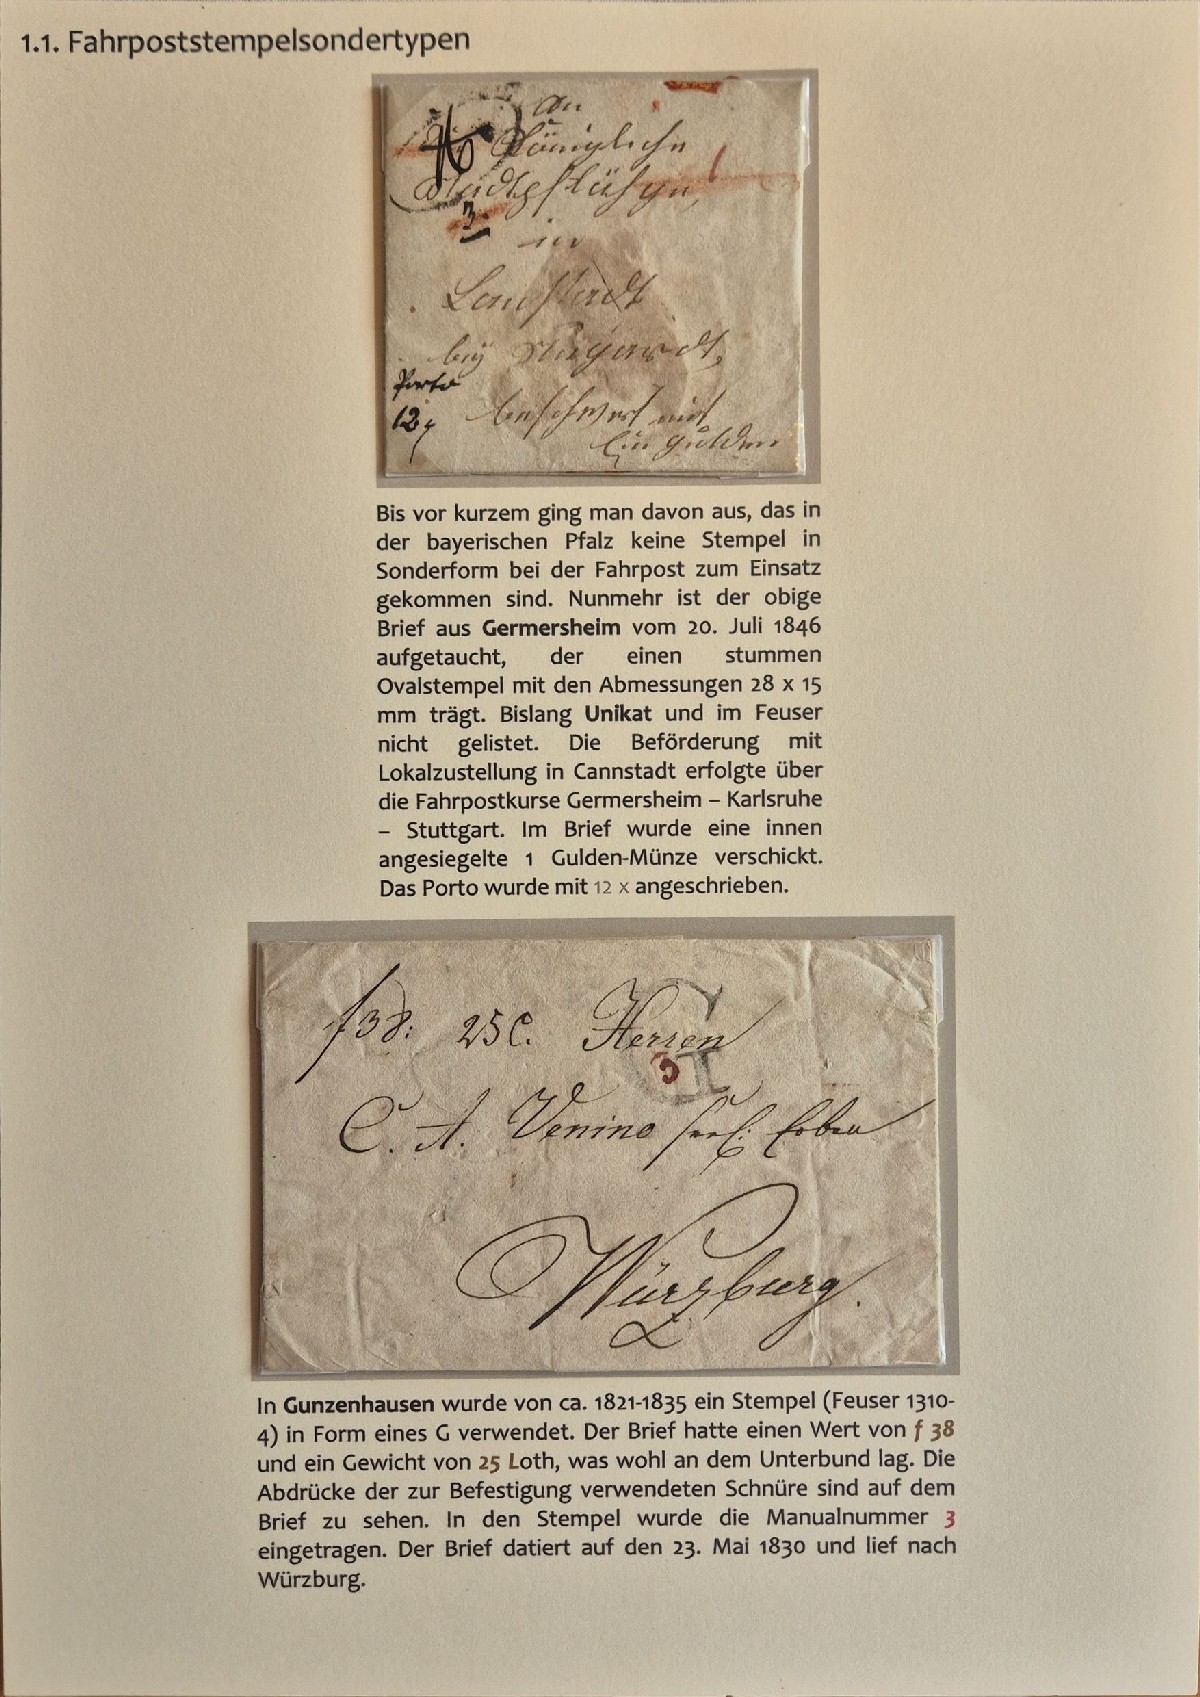 1.1. Fahrpoststempelsondertypen
An
Königliche
in
Cannstadt
bey
Porto
12x
beschwert mit
Ein Gulden
3.
Bis vor kurzem ging man davon aus, das in
der bayerischen Pfalz keine Stempel in
Sonderform bei der Fahrpost zum Einsatz
gekommen sind. Nunmehr ist der obige
Brief aus Germersheim vom 20. Juli 1846
aufgetaucht, der einen stummen
Ovalstempel mit den Abmessungen 28 x 15
mm trägt. Bislang Unikat und im Feuser
nicht gelistet. Die Beförderung mit
Lokalzustellung in Cannstadt erfolgte über
die Fahrpostkurse Germersheim – Karlsruhe
– Stuttgart. Im Brief wurde eine innen
angesiegelte 1 Gulden-Münze verschickt.
Das Porto wurde mit 12 x angeschrieben.
f 38: 25 C. Herren
G
3
C. A. Venino seel. Erben
Würzburg.
In Gunzenhausen wurde von ca. 1821-1835 ein Stempel (Feuser 1310-
4) in Form eines G verwendet. Der Brief hatte einen Wert von f 38
und ein Gewicht von 25 Loth, was wohl an dem Unterbund lag. Die
Abdrücke der zur Befestigung verwendeten Schnüre sind auf dem
Brief zu sehen. In den Stempel wurde die Manualnummer 3
eingetragen. Der Brief datiert auf den 23. Mai 1830 und lief nach
Würzburg.